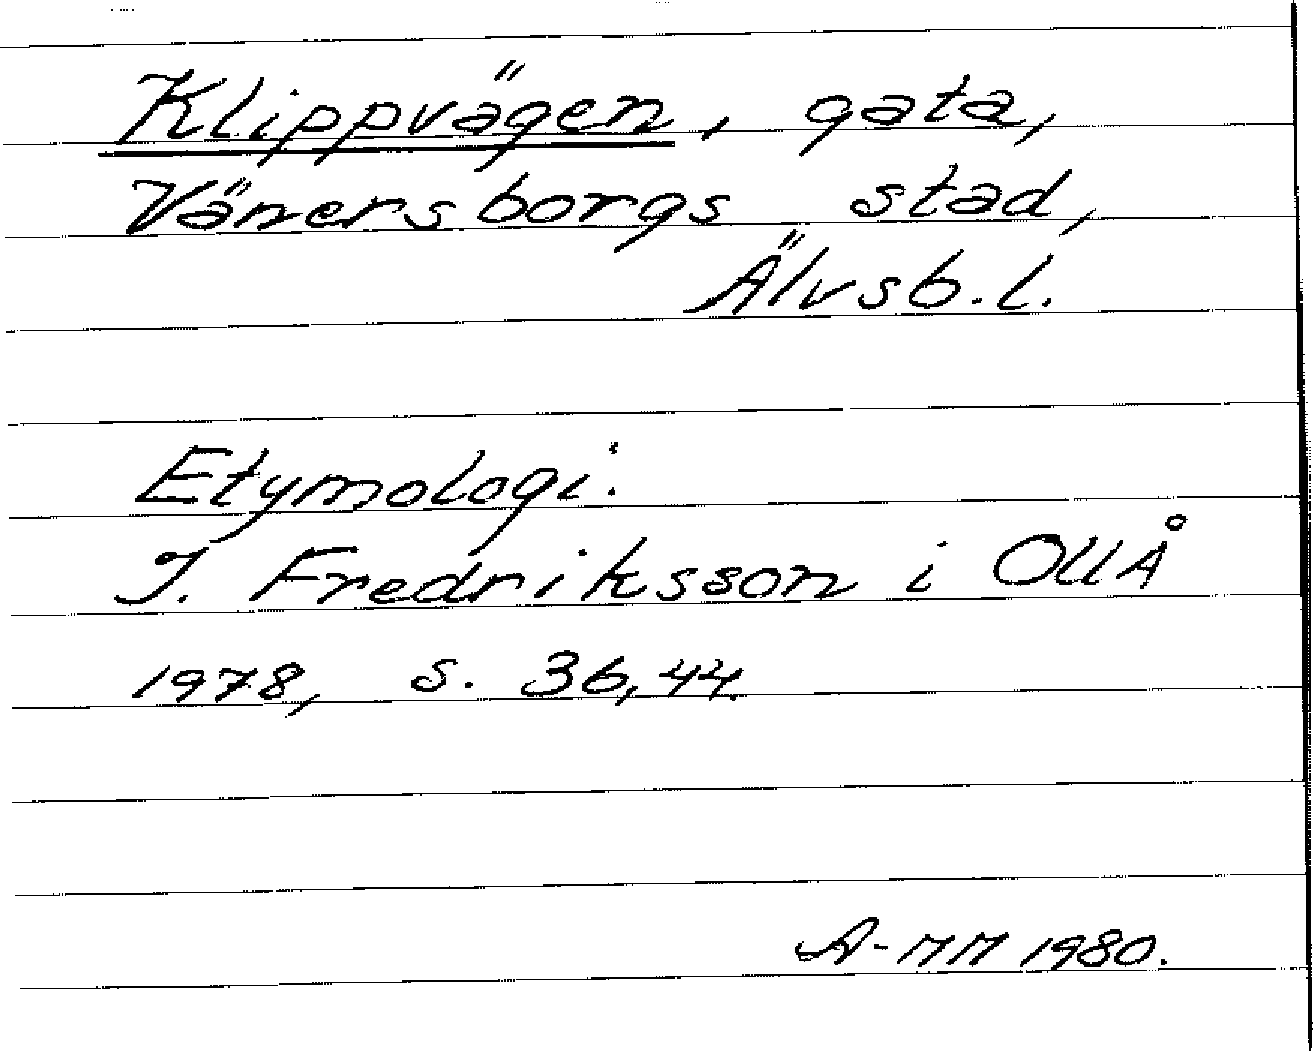 Klippvägen, gata,
Vänersborgs stad,
Älvsb. l.
Etymologi:
I. Fredriksson i OUÅ
1978, s. 36, 44.
A-MM 1980.